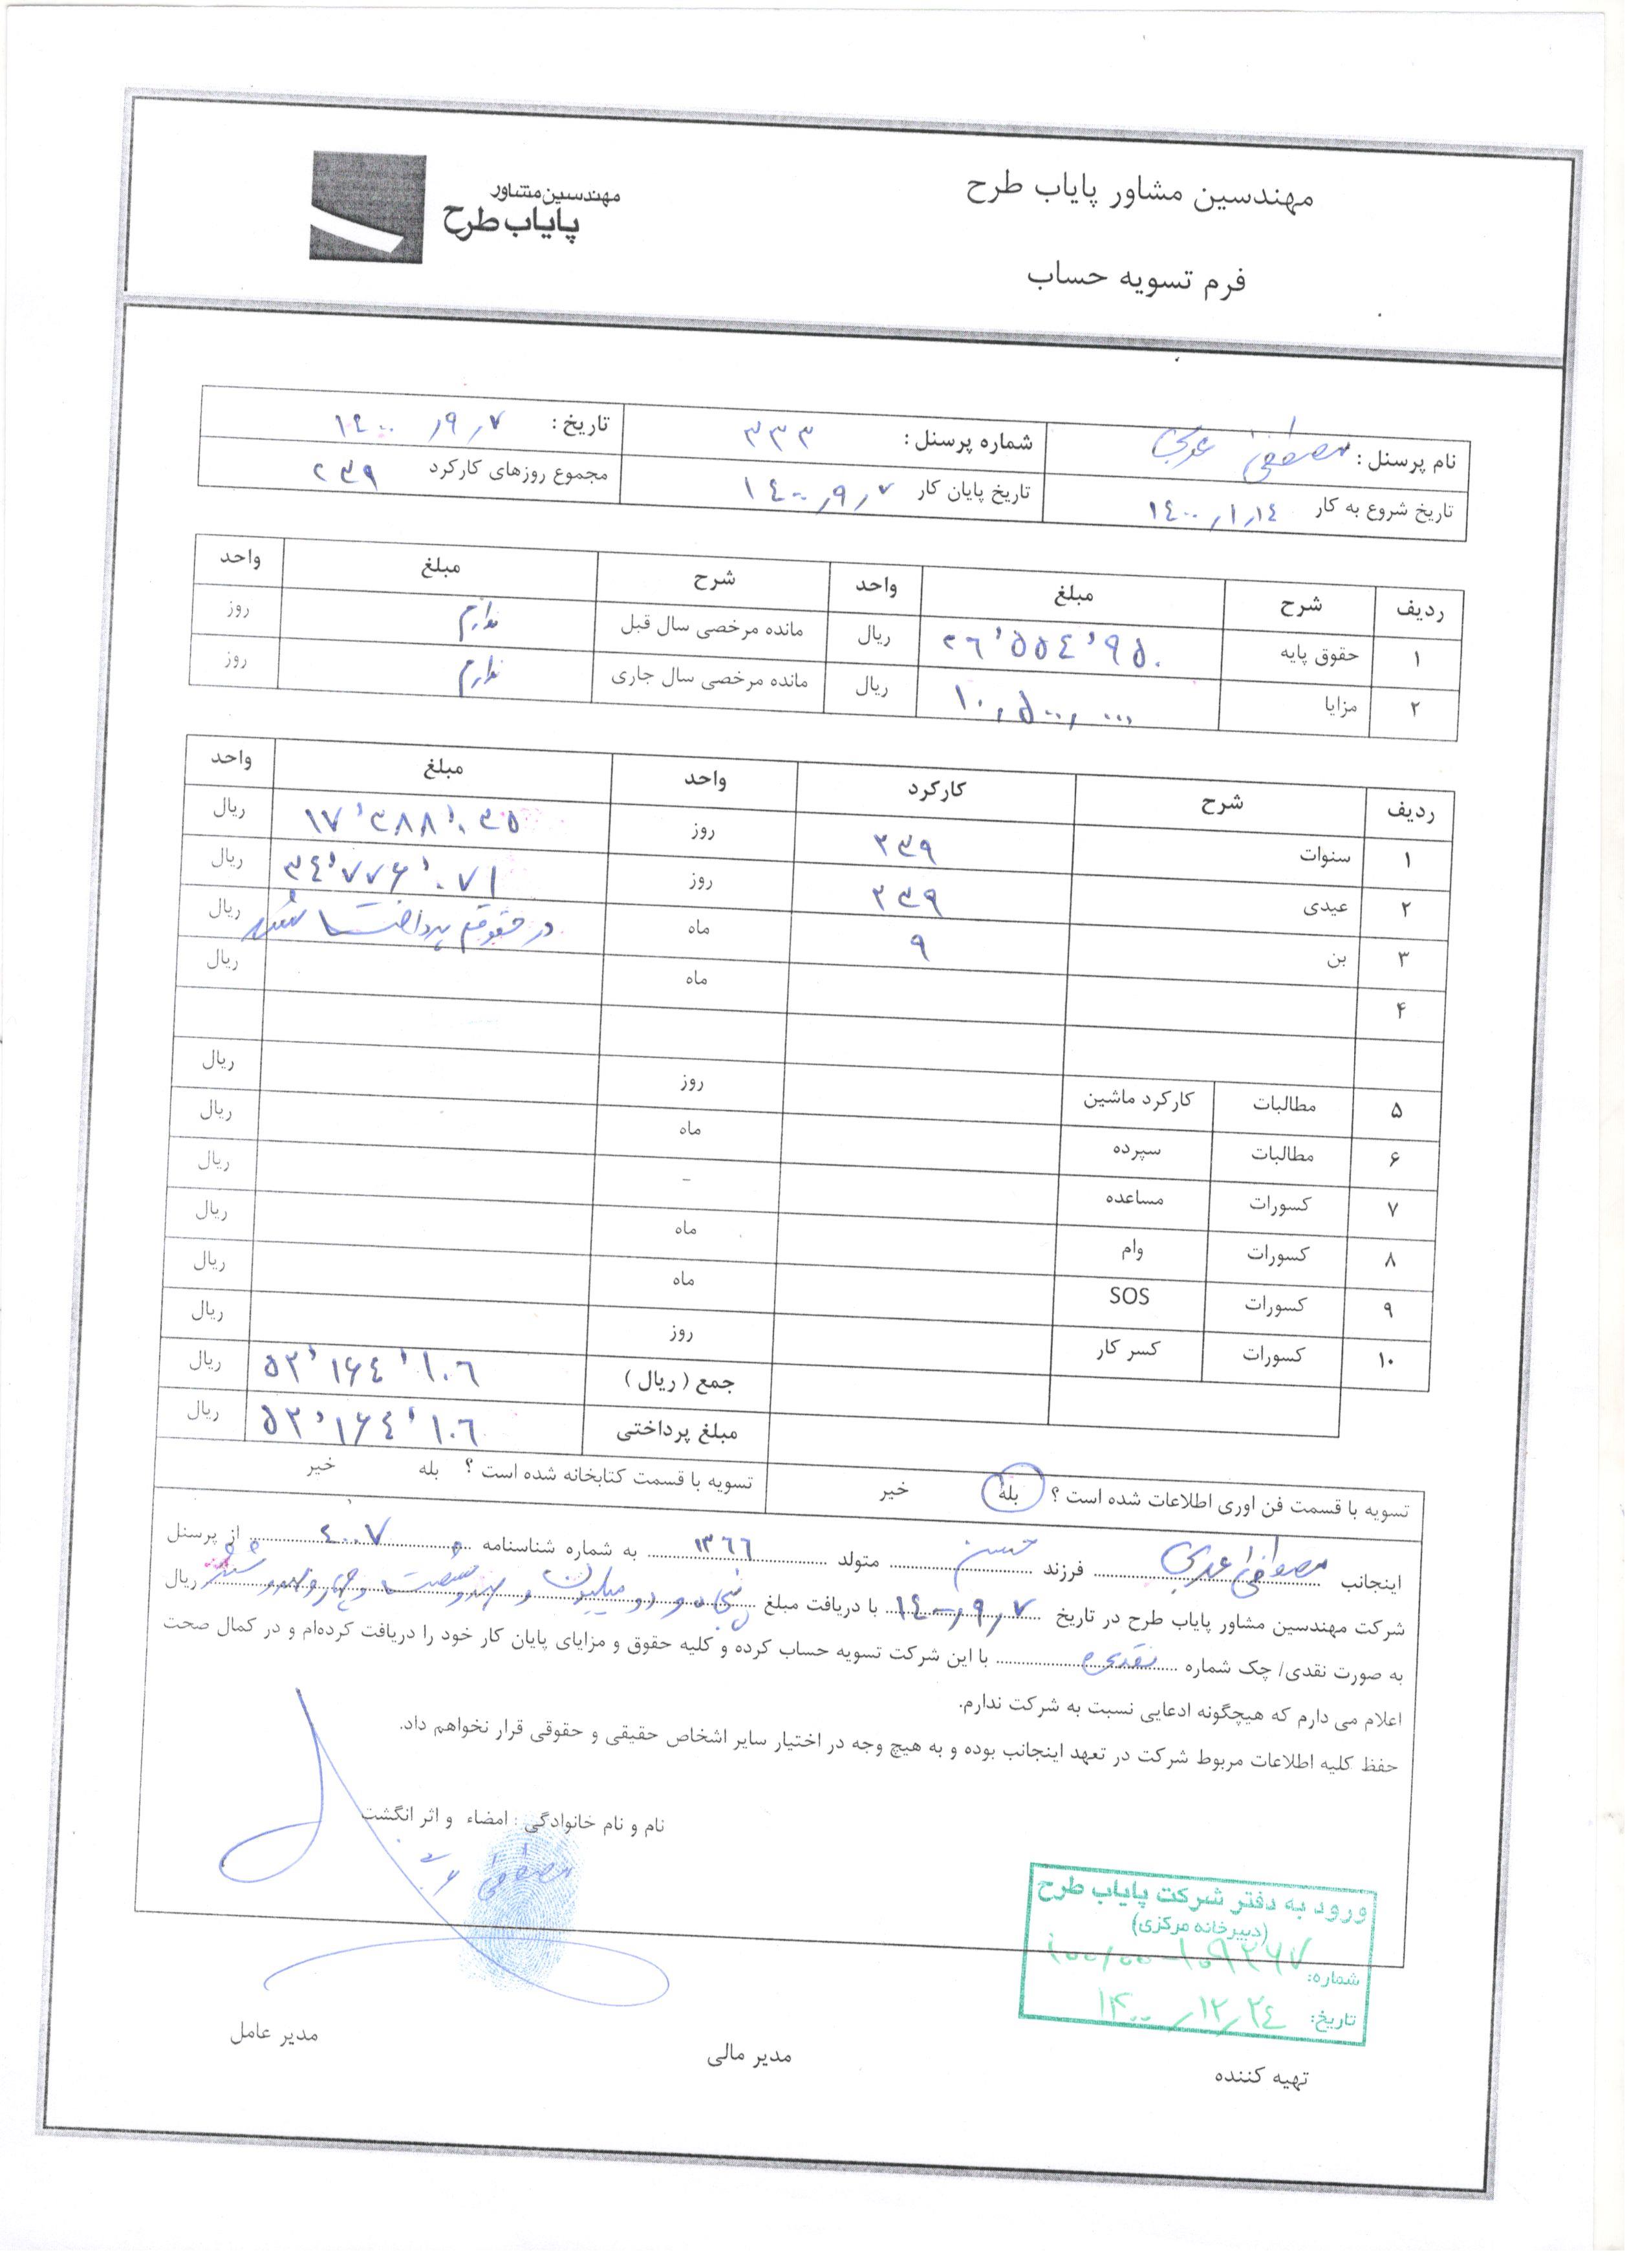 مهندسین مشاور پایاب طرح
مهندسین مشاور
پایاب طرح
فرم تسویه حساب
نام پرسنل : مصطفی عربی شماره پرسنل : ۳۳۳ تاریخ : ۱۴۰۰/۹/۷
تاریخ شروع به کار ۱۴۰۰/۱/۱۴ تاریخ پایان کار ۱۴۰۰/۹/۷ مجموع روزهای کارکرد ۲۳۹
ردیف شرح مبلغ واحد شرح مبلغ واحد
۱ حقوق پایه ۲۶٬۵۵۴٬۹۵۰ ریال مانده مرخصی سال قبل ندارم روز
۲ مزایا ۱۰,۵۰۰,۰۰۰ ریال مانده مرخصی سال جاری ندارم روز
ردیف شرح کارکرد واحد مبلغ واحد
۱ سنوات ۲۳۹ روز ۱۷٬۳۸۸٬۰۳۵ ریال
۲ عیدی ۲۳۹ روز ۳۴٬۷۷۶٬۰۷۱ ریال
۳ بن ۹ ماه در حقوقم پرداخت شده ریال
۴ ماه ریال
۵ مطالبات کارکرد ماشین روز ریال
۶ مطالبات سپرده ماه ریال
۷ کسورات مساعده - ریال
۸ کسورات وام ماه ریال
۹ کسورات SOS ماه ریال
۱۰ کسورات کسر کار روز ریال
جمع ( ریال ) ۵۲٬۱۶۴٬۱۰۶ ریال
مبلغ پرداختی ۵۲٬۱۶۴٬۱۰۶ ریال
تسویه با قسمت فن اوری اطلاعات شده است ؟ بله خیر تسویه با قسمت کتابخانه شده است ؟ بله خیر
اینجانب مصطفی عربی فرزند حسن متولد ۱۳۶۶ به شماره شناسنامه ۴۰۰۷ از پرسنل
شرکت مهندسین مشاور پایاب طرح در تاریخ ۱۴۰۰/۹/۷ با دریافت مبلغ پنجاه و دو میلیون و صد و شصت و چهار و صد و شش ریال
به صورت نقدی/ چک شماره نقدی با این شرکت تسویه حساب کرده و کلیه حقوق و مزایای پایان کار خود را دریافت کرده‌ام و در کمال صحت
اعلام می دارم که هیچگونه ادعایی نسبت به شرکت ندارم.
حفظ کلیه اطلاعات مربوط شرکت در تعهد اینجانب بوده و به هیچ وجه در اختیار سایر اشخاص حقیقی و حقوقی قرار نخواهم داد.
نام و نام خانوادگی : امضاء و اثر انگشت
مصطفی عربی
ورود به دفتر شرکت پایاب طرح
(دبیرخانه مرکزی)
شماره: ۱۰۰/۰۰-۱۰۹۲۶۷
تاریخ: ۱۴۰۰/۱۲/۲۴
تهیه کننده مدیر مالی مدیر عامل